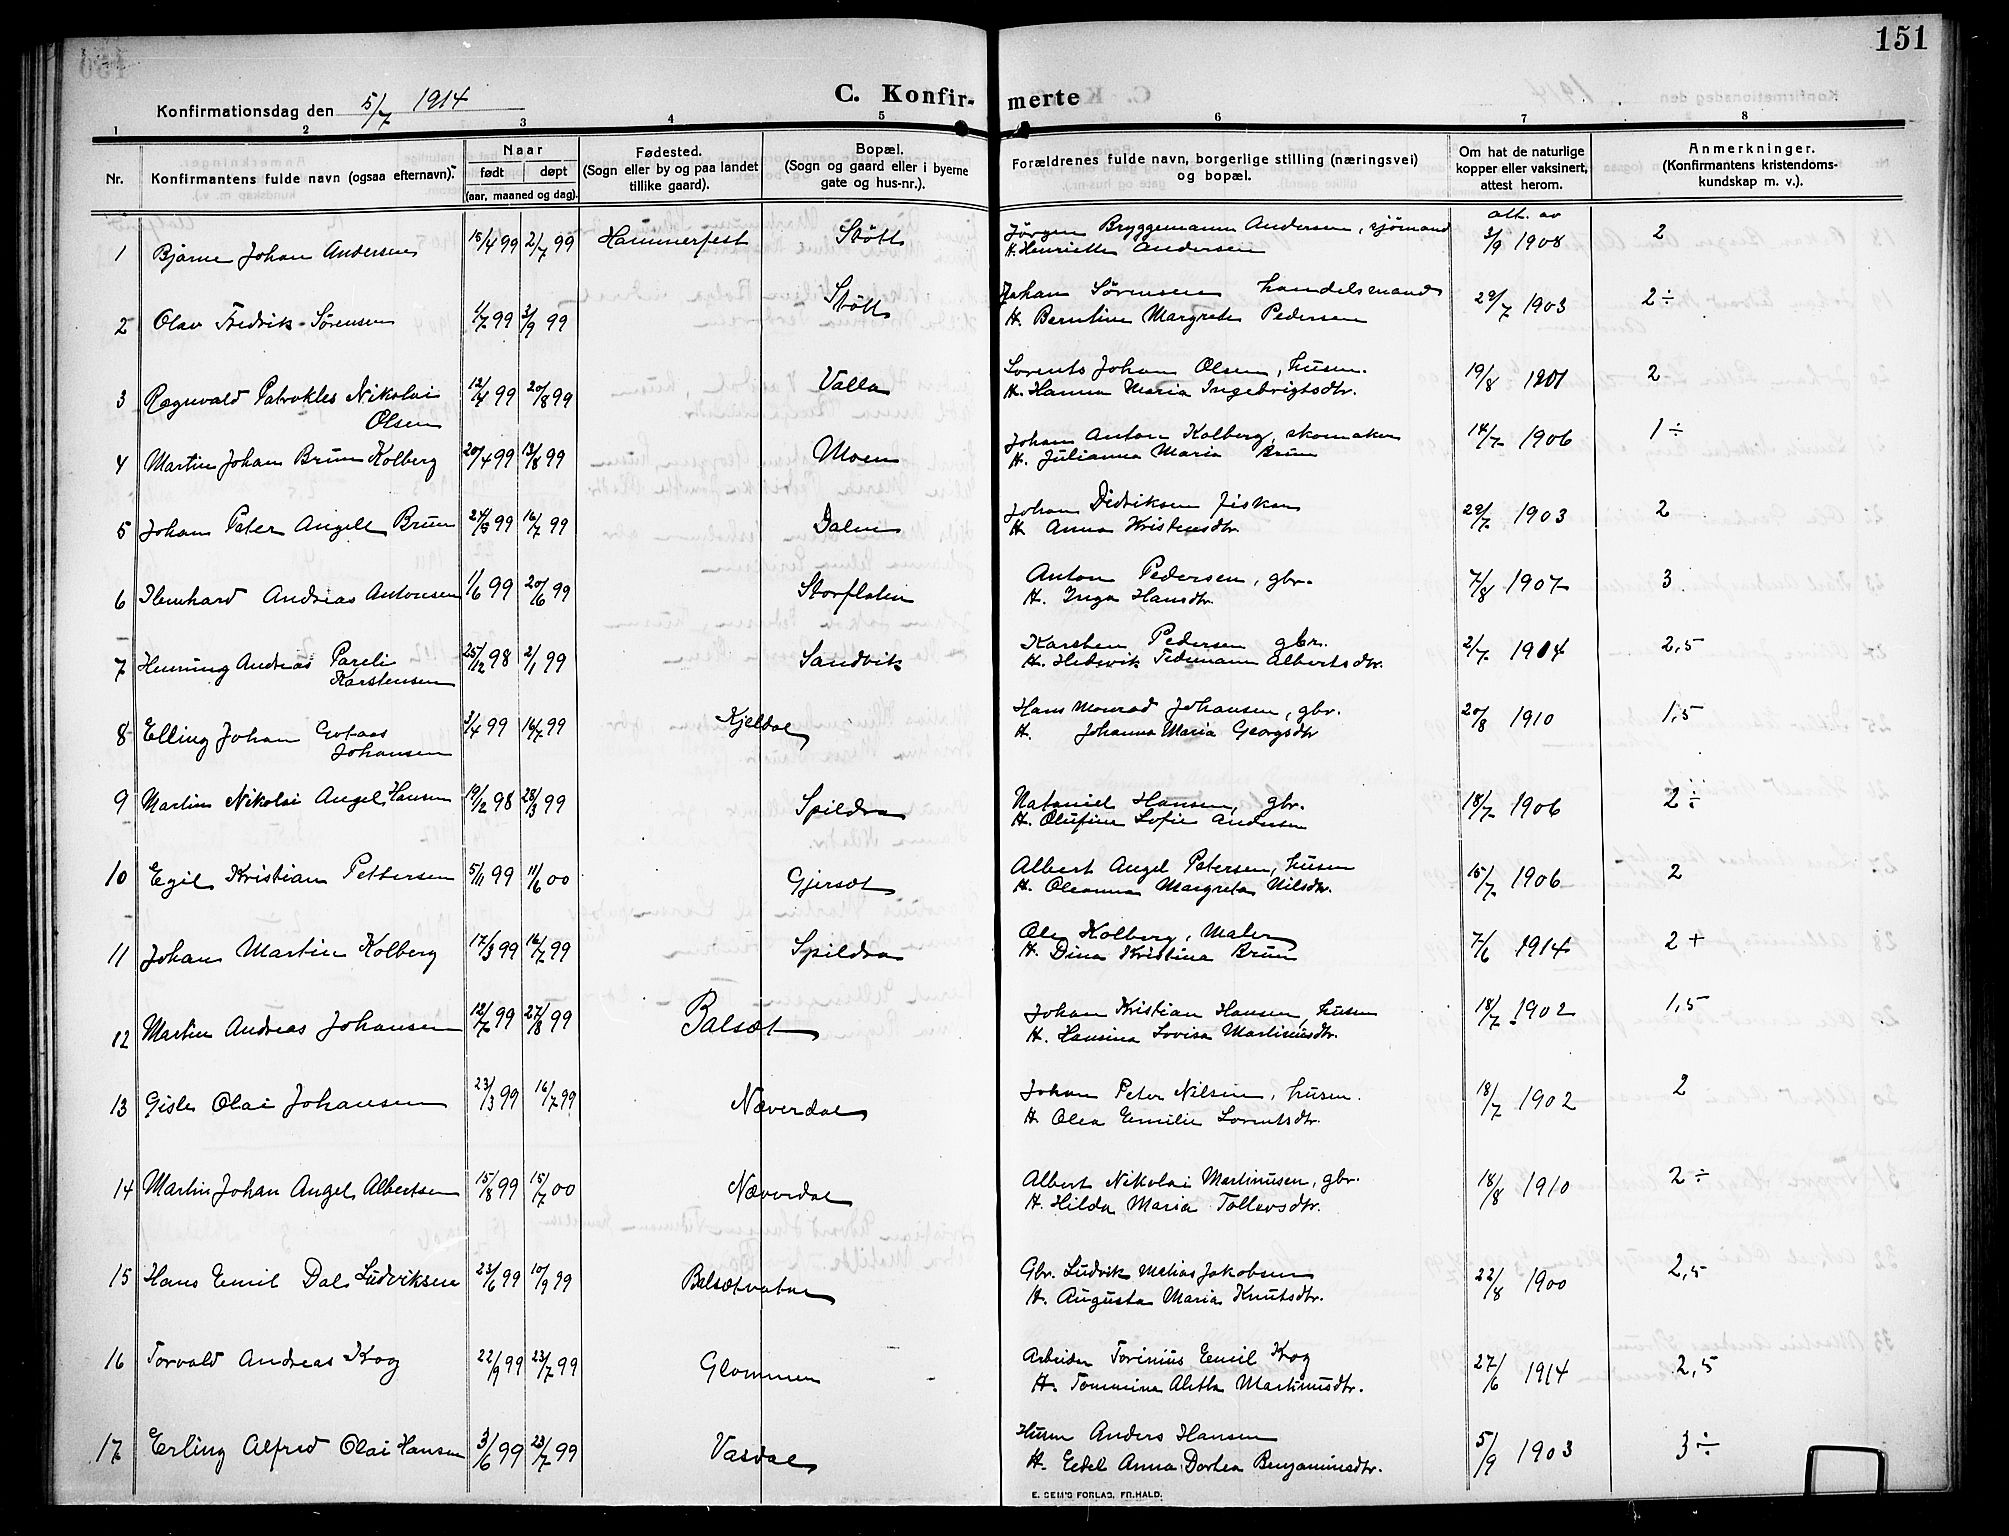 151
Konfirmationsdag den 5/7 1914
C. Konfir-
merte
1 2 3 4 5 6 7 8
Nr.
Konfirmantens fulde navn (ogsaa efternavn).
Naar
født døpt
(aar, maaned og dag).
Fødested.
(Sogn eller by og paa landet
tillike gaard).
Bopæl.
(Sogn og gaard eller i byerne
gate og hus-nr.).
Forældrenes fulde navn, borgerlige stilling (næringsvei)
og bopæl.
Om hat de naturlige
kopper eller vaksinert,
attest herom.
Anmerkninger.
(Konfirmantens kristendoms-
kundskap m. v.).
1 Bjarne Johan Andersen 18/4 99 2/7 99 Hammerfest Støtt Jørgen Bryggemann Andersen, sjømand att. av 3/9 1908 2
H. Henriette Andersen
2 Olav Fredrik Sørensen 1/7 99 3/9 99 Støtt Johan Sørensen handelsmand 29/7 1903 2÷
H. Berntine Margrete Pedersen
3 Ragnvald Patrokles Nikolai 12/4 99 20/8 99 Valla Lorents Johan Olsen, husm. 19/8 1901 2
Olsen H. Hanna Maria Ingebrigtsdtr.
4 Martin Johan Brun Kolberg 20/4 99 13/8 99 Moen Johan Anton Kolberg, skomaker 14/7 1906 1÷
H. Julianna Maria Brun
5 Johan Peter Angell Brun 24/3 99 16/7 99 Dalen Johan Didriksen fisker 29/7 1903 2
H. Anna Kristensdtr.
6 Ilenhard Andreas Antonsen 1/6 99 20/6 99 Storflaten Anton Pedersen, gbr. 7/8 1907 3
H. Inga Hansdtr.
7 Henning Andreas Pareli 25/12 98 2/1 99 Sandvik Karsten Pedersen gbr. 2/7 1914 2,5
Karstensen H. Hedevik Tedemann Albertsdtr.
8 Elling Johan Gotaas 3/4 99 16/7 99 Kjeldal Hans Monrad Johansen, gbr. 20/8 1910 1,5
Johansen H. Johanna Maria Georgsdtr
9 Martin Nikolai Angel Hansen 19/12 98 28/3 99 Spildra Nataniel Hansen, gbr. 18/7 1906 2÷
H. Olufine Sofie Andersen
10 Egil Kristian Pettersen 5/11 99 11/6 00 Gjersæt Albert Angel Petersen, husm 15/7 1906 2
H. Oleanna Margreta Nilsdtr.
11 Johan Martin Kolberg 17/3 99 16/7 99 Spildra Ole Kolberg, Maler 7/6 1914 2+
H. Dina Kristina Brun
12 Martin Andreas Johansen 12/6 99 27/8 99 Balsæt Johan Kristian Hansen, husm 18/7 1902 1,5
H. Hansina Lovisa Martinusdtr.
13 Gisle Olai Johansen 23/3 99 16/7 99 Næverdal Johan Peter Nilsen, husm. 18/7 1902 2
H Olea Emilie Lorentsdtr.
14 Martin Johan Angel Albertsen 15/8 99 15/7 00 Næverdal Albert Nikolai Martinusen, gbr. 18/8 1910 2÷
H. Hilda Maria Tollevsdtr.
15 Hans Emil Dal Ludviksen 23/6 99 10/9 99 Balsætvatne Gbr. Ludvik Matias Jakobsen 22/8 1900 2,5
H. Augusta Maria Knutsdtr.
16 Torvald Andreas Krog 22/9 99 23/7 99 Glommen Arbeider Torinius Emil Krog 27/6 1914 2,5
H. Tommina Aletta Martinusdtr.
17 Erling Alfred Olai Hansen 3/6 99 23/7 99 Vasdal Husm Anders Hansen 5/9 1903 3÷
H. Edel Anna Dortea Benjaminsdtr.
E. SEM'S FORLAG, FR.HALD.